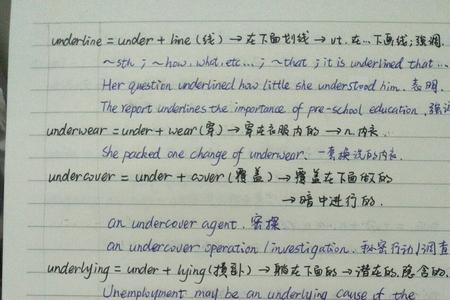 underline = under + line (线) → 在下面划线 → vt. 在…下画线; 强调.
~sth ; ~how, what, etc... ; ~that ; it is underlined that ...
Her question underlined how little she understood him. 表明.
The report underlines the importance of pre-school education. 强调
underwear = under + wear (穿) → 穿在衣服内的 → n. 内衣.
She packed one change of underwear. 一套换洗的内衣.
undercover = under + cover (覆盖) → 覆盖在下面做的
→ 暗中进行的.
an undercover agent. 密探
an undercover operation / investigation. 秘密行动/调查
underlying = under + lying (躺卧) → 躺在下面的 → 潜在的, 隐含的.
Unemployment may be an underlying cause of the